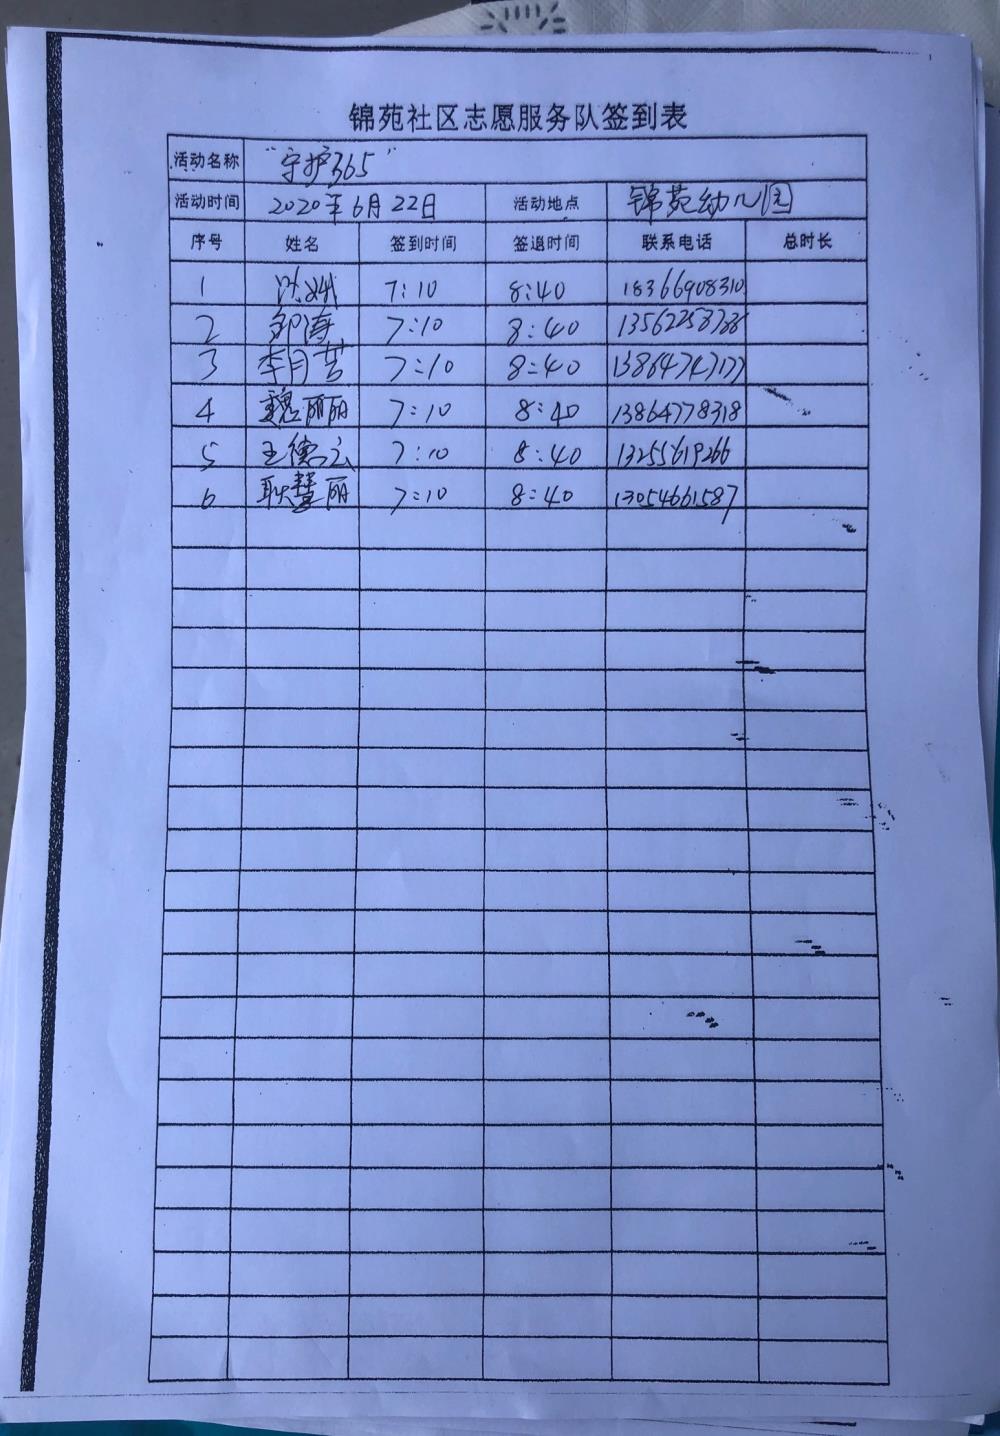 锦苑社区志愿服务队签到表
活动名称 "守护365"
活动时间 2020年6月22日 活动地点 锦苑幼儿园
序号 姓名 签到时间 签退时间 联系电话 总时长
1 7:10 8:40 18366908310
2 邹涛 7:10 8:40
3 李月芸 7:10 8:40 13864747177
4 魏丽丽 7:10 8:40 13864778318
5 王德云 7:10 8:40 13255619266
6 耿慧丽 7:10 8:40 13054661587